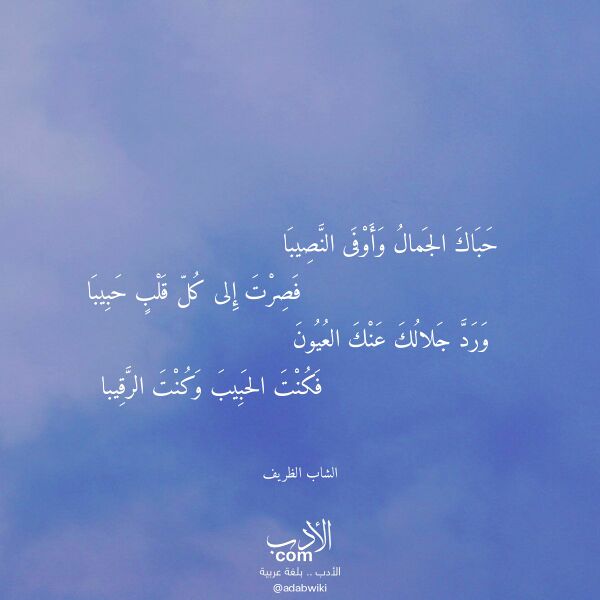 حَبَاكَ الجَمالُ وَأَوْفَى النَّصِيبَا
فَصِرْتَ إِلى كُلّ قَلْبٍ حَبِيبَا
وَرَدَّ جَلالُكَ عَنْكَ العُيُونَ
فَكُنْتَ الحَبِيبَ وَكُنْتَ الرَّقِيبا
الشاب الظريف
الأدب
com
الأدب .. بلغة عربية
@adabwiki